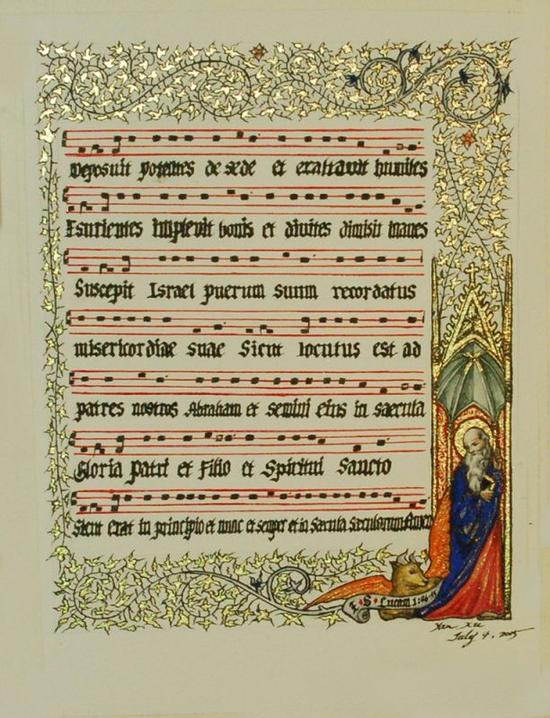 Deposuit potentes de sede et exaltavit humiles
Esurientes implevit bonis et divites dimisit inanes
Suscepit Israel puerum suum recordatus
misericordiae suae Sicut locutus est ad
patres nostros Abraham et semini eius in saecula
Gloria Patri et Filio et Spiritui Sancto
Sicut erat in principio et nunc et semper et in saecula saeculorum Amen
S. Lucam 1:46
Yan Xu
July 9, 2005